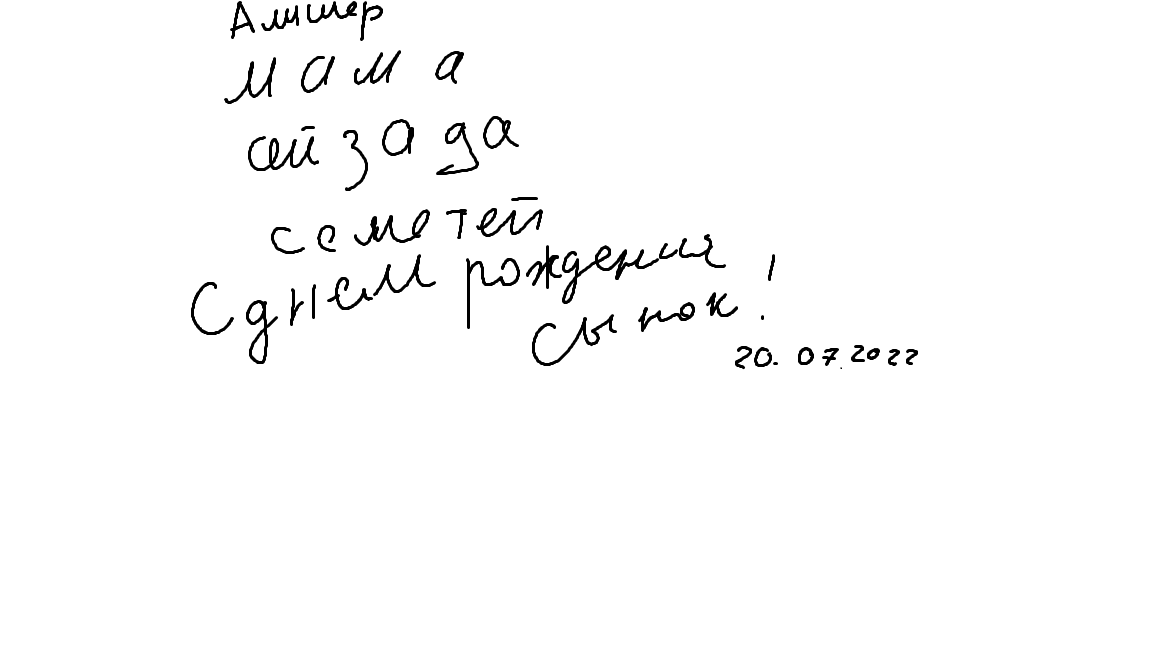 Алишер
мама
айзада
семетей
С днем рождения
сынок!
20.07.2022